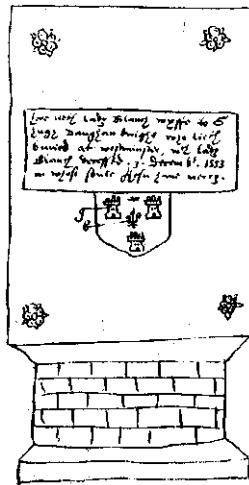 here lieth Lady Blanch wyffe to S
hugh Vaughan knight who lieth
buried at westminster, wch Lady
Blanch decessed . 3 . Decemb^r. 1553
on whose soule Jhesu have mercy.